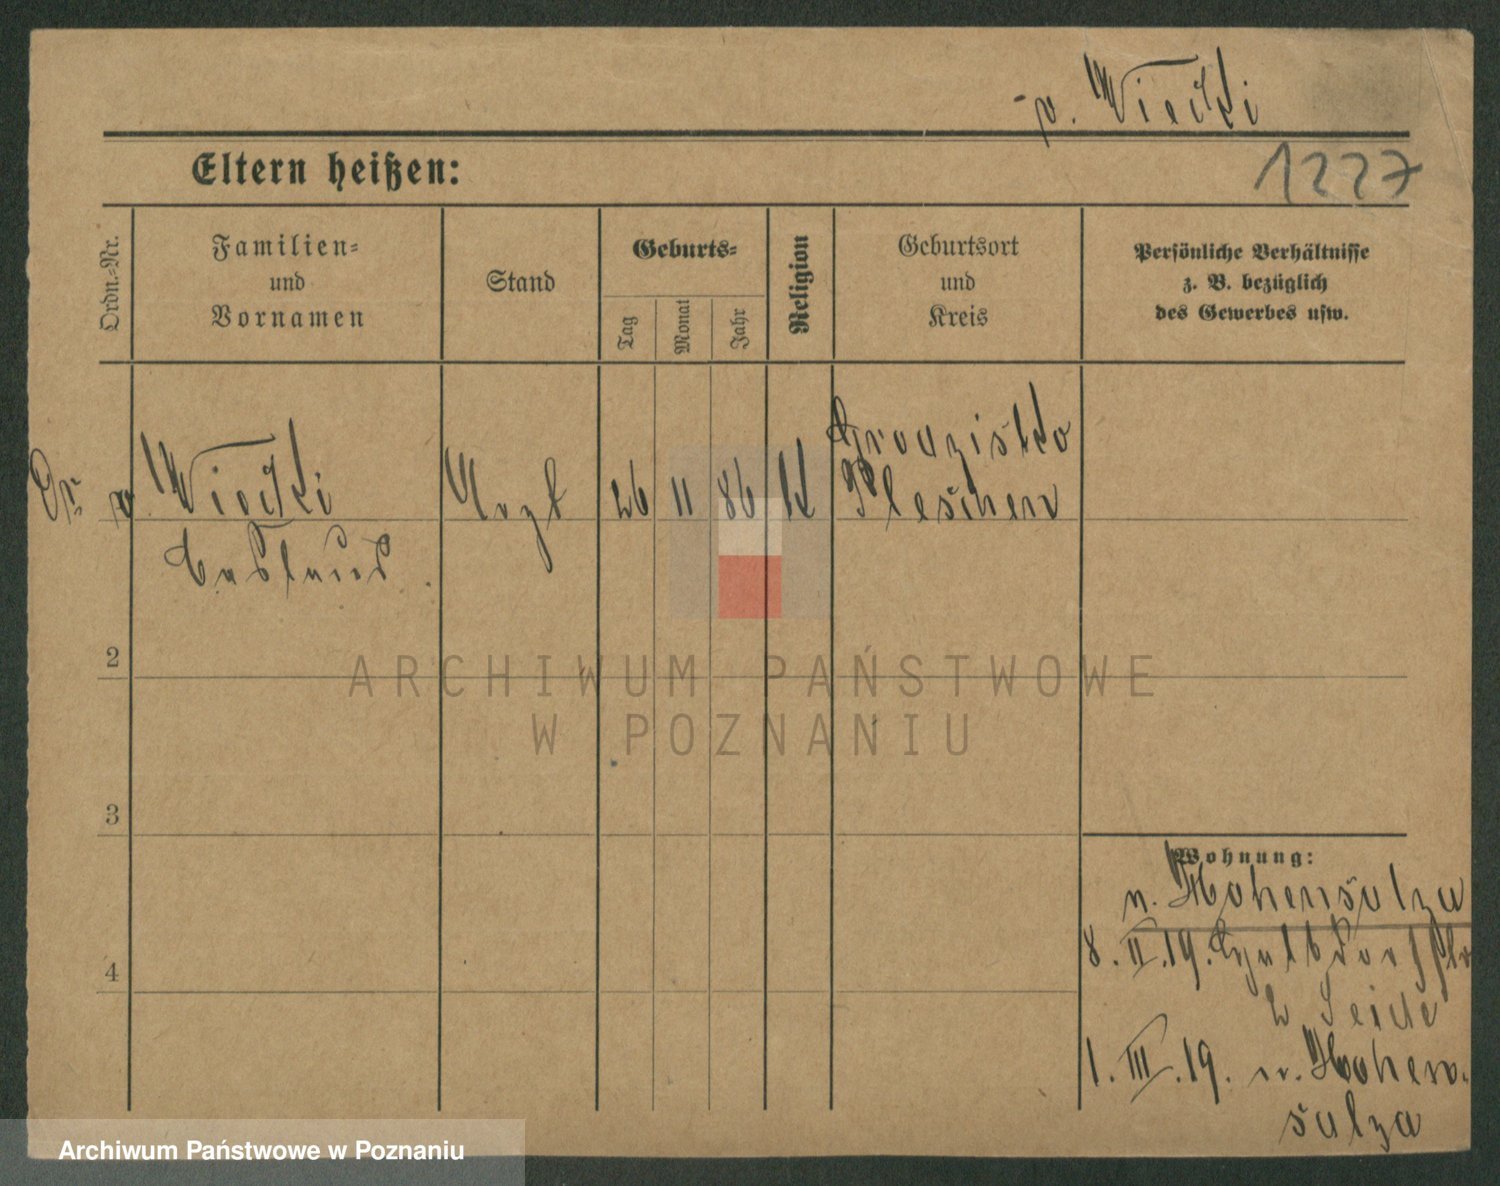 v. Wiecki
1227
Eltern heißen:
Ordn.-Nr.
Familien-
und
Vornamen
Stand
Geburts-
Tag
Monat
Jahr
Religion
Geburtsort
und
Kreis
Persönliche Verhältnisse
z. B. bezüglich
des Gewerbes usw.
Dr. v. Wiecki
Arzt
26
11
86
k
Grodzisko
Pleschen
2
3
4
Wohnung:
n. Hohensalza
8. II. 19.
b Seide
1. III. 19. n. Hohen-
salza
ARCHIWUM PAŃSTWOWE
W POZNANIU
Archiwum Państwowe w Poznaniu